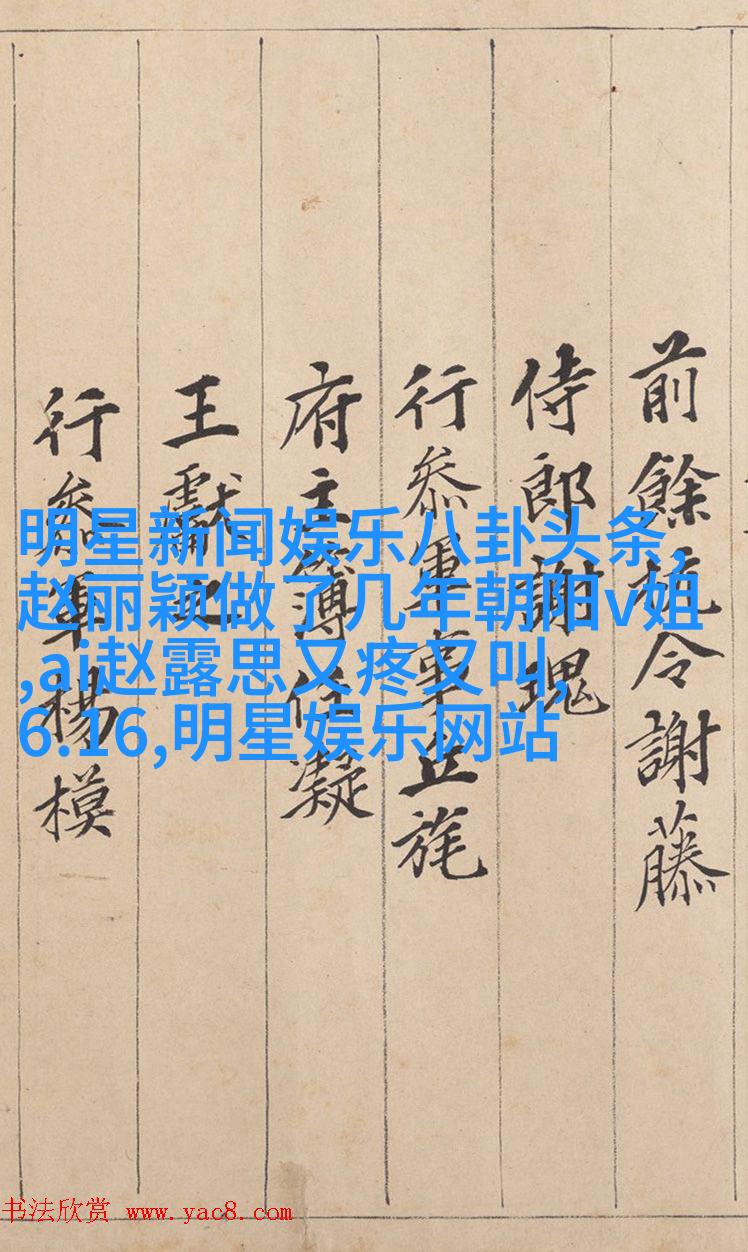 前餘杭令謝藤
侍郎謝瑰
行叅軍事丘旄
府主簿任凝
王獻之
行叅軍楊模
明星新闻娱乐八卦头条,
赵丽颖做了几年朝阳v姐
,ai赵露思又疼又叫,
6.16,明星娱乐网站
书法欣赏 www.yac8.com